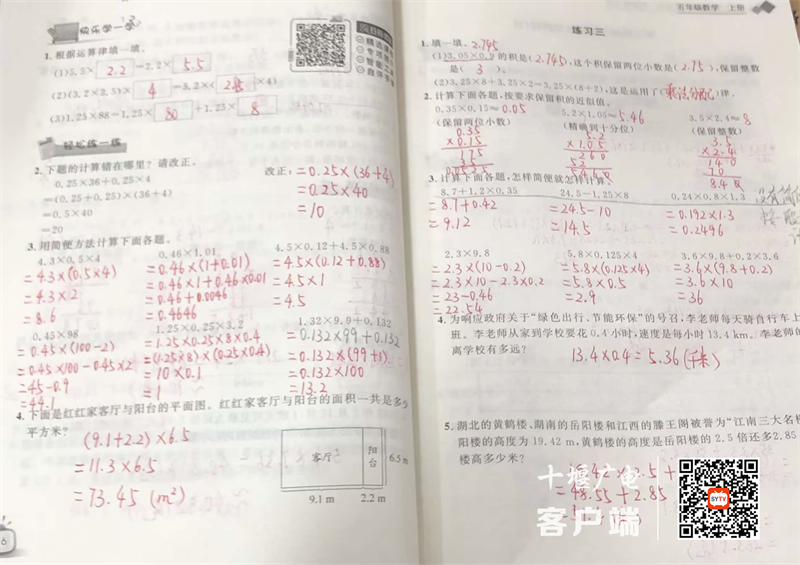 快乐学一学
1. 根据运算律填一填。
(1)5.5×2.2=2.2×5.5
(2)(3.2×2.5)×4=3.2×(2.5×4)
(3)1.25×88=1.25×80+1.25×8
轻松练一练
2. 下题的计算错在哪里？请改正。
0.25×36+0.25×4
=(0.25+0.25)×(36+4)
=0.5×40
=20
改正：=0.25×(36+4)
=0.25×40
=10
3. 用简便方法计算下面各题。
4.3×0.5×4
=4.3×(0.5×4)
=4.3×2
=8.6
0.46×1.01
=0.46×(1+0.01)
=0.46×1+0.46×0.01
=0.46+0.0046
=0.4646
4.5×0.12+4.5×0.88
=4.5×(0.12+0.88)
=4.5×1
=4.5
0.45×98
=0.45×(100-2)
=0.45×100-0.45×2
=45-0.9
=44.1
1.25×0.25×3.2
=1.25×0.25×8×0.4
=(1.25×8)×(0.25×0.4)
=10×0.1
=1
1.32×9.9+0.132
=0.132×99+0.132
=0.132×(99+1)
=0.132×100
=13.2
4. 下面是红红家客厅与阳台的平面图。红红家客厅与阳台的面积一共是多少
平方米？
(9.1+2.2)×6.5
=11.3×6.5
=73.45(m²)
客厅
阳台
6.5 m
9.1 m
2.2 m
6
五年级数学 上册
练习三
1. 填一填。
2.745
(1)3.05×0.9的积是(2.745),这个积保留两位小数是(2.75),保留整数
是(3)。
(2)3.25×8+3.25×2=3.25×(8+2),这是运用了(乘法分配)律。
2. 计算下面各题,按要求保留积的近似值。
0.35×0.15≈0.05
(保留两位小数)
0.35
×0.15
0.0525
5.2×1.05≈5.46
(精确到十分位)
5.2
×1.05
260
52
5.460
3.5×2.4≈8
(保留整数)
3.5
×2.4
140
70
3. 计算下面各题,怎样简便就怎样计算。
8.7+1.2×0.35
=8.7+0.42
=9.12
24.5-1.25×8
=24.5-10
=14.5
0.24×0.8×1.3
=0.192×1.3
=0.2496
2.3×9.8
=2.3×(10-0.2)
=2.3×10-2.3×0.2
=23-0.46
=22.54
5.8×0.125×4
=5.8×(0.125×4)
=5.8×0.5
=2.9
3.6×9.8+0.2×3.6
=3.6×(9.8+0.2)
=3.6×10
=36
4. 为响应政府关于“绿色出行、节能环保”的号召,李老师每天骑自行车上
班。李老师从家到学校要花0.4小时,速度是每小时13.4 km。李老师的
离学校有多远?
13.4×0.4=5.36(千米)
5. 湖北的黄鹤楼、湖南的岳阳楼和江西的滕王阁被誉为“江南三大名楼
阳楼的高度为19.42 m,黄鹤楼的高度是岳阳楼的2.5倍还多2.85
楼高多少米?
=48.55+2.85
十堰广电
客户端
SYTV